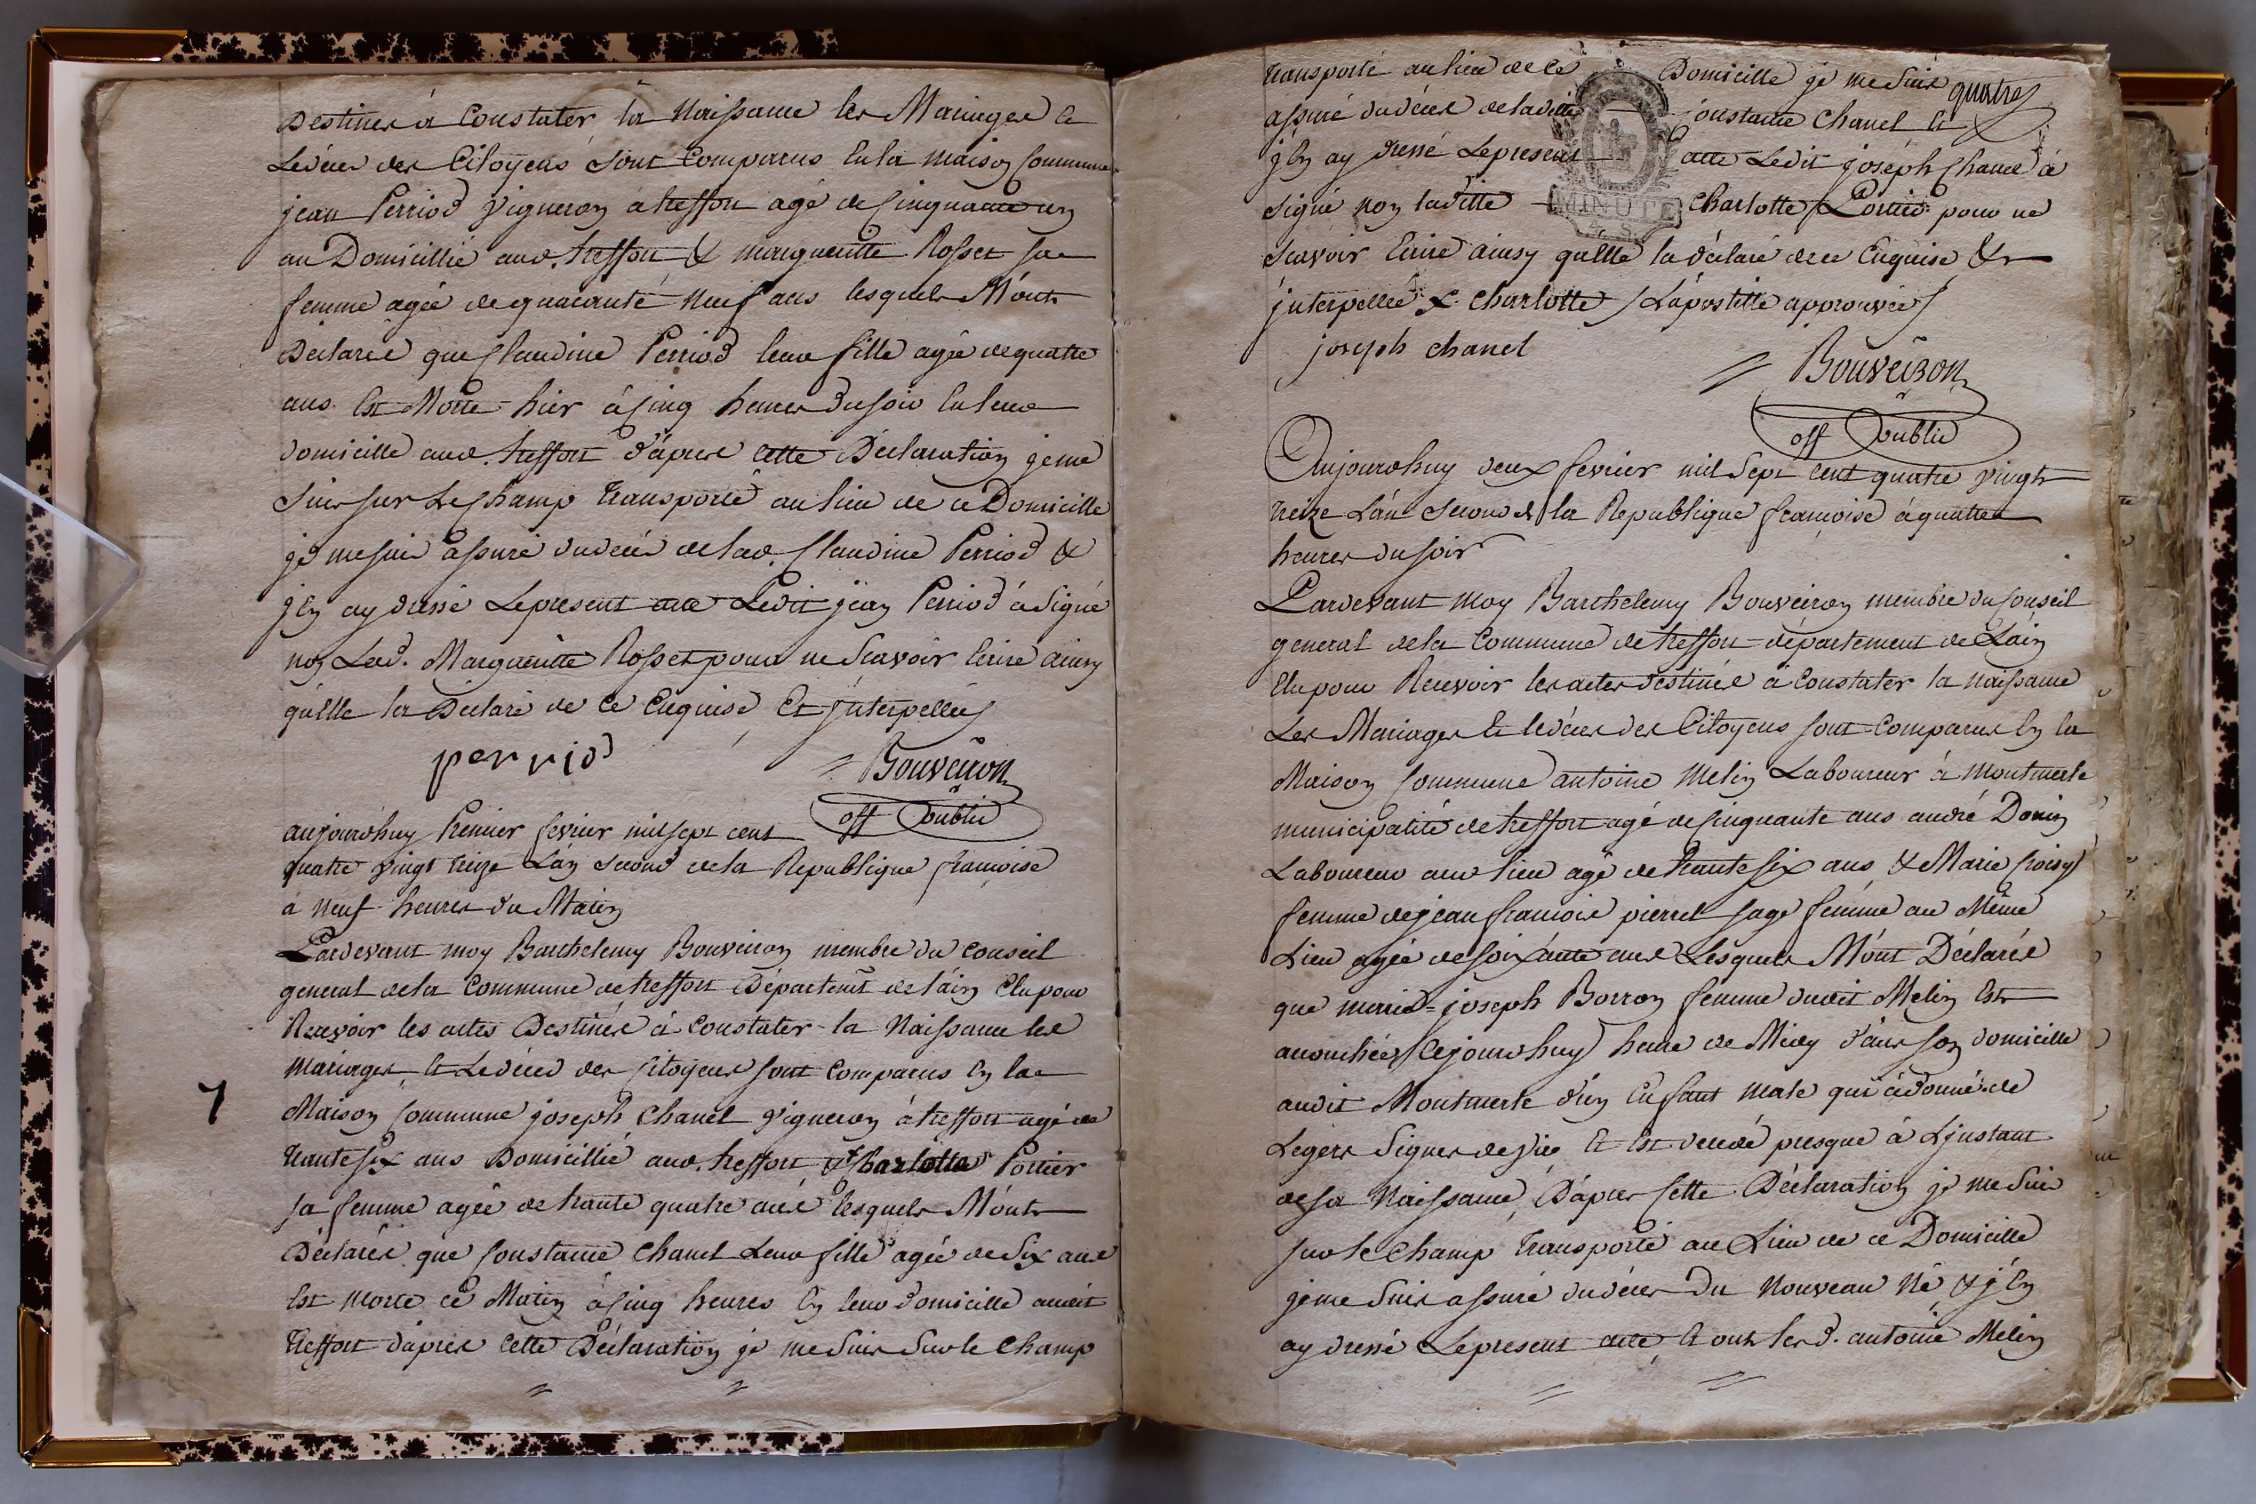 Destinés à Constater la Naissance les Mariages &
Le décès des Citoyens sont Comparus En la maison Commune
jean Perriod Vigneron à treffort agé de Cinquante un
an Domicillié aud. treffort & margueritte Rosset sa
femme agée de quarante Neuf ans lesquels M'ont
Déclarée que Claudine Perriod leur fille agée de quatre
ans Est Morte hier à Cinq heures du soir En leur
domicille aud. treffort d'après cette Déclaration je me
suis sur Le Champ transporté au lieu de ce Domicille
je me suis assuré du décès de lad. Claudine Perriod &
j'En ay dressé Le present acte Ledit jean Perriod à Signé
non Lad. Margueritte Rosset pour ne Scavoir Ecrire ainsy
qu'Elle la Déclaré de ce Enquise Et jnterpellée
perriod
= Bouveiron
off Public
aujourdhuy Premier fevrier mil sept cent
quatre vingt treize L'an second de la Republique francoise
à neuf heures du Matin
Pardevant moy Barthelemy Bouveiron membre du Conseil
general de la Commune de treffort Départem't de l'ain Elu pour
Recevoir les actes Destinés à Constater la Naissance les
mariages & Le décès des Citoyens sont Comparus En la
7
Maison Commune joseph Chanel Vigneron à treffort agé de
trante six ans Domicillié aud. treffort & Charlotte Portier
sa femme agée de trante quatre ans lesquels M'ont
Déclarés que Constance Chanel Leur fille agée de Six ans
Est morte ce Matin à Cinq heures En leur domicille audit
treffort d'après cette Déclaration je me suis Sur le Champ
= =
transporté au lieu de ce Domicille je me suis
quatre
assuré du décès de laditte Constance Chanel &
j'En ay dressé Le present acte Ledit joseph Chanel à
signé non laditte Charlotte Portier pour ne
MINUTE
scavoir Ecrire ainsy qu'Elle la déclaré de ce Enquise &
jnterpellée x Charlotte / L'apostille approuvée /
joseph chanel
= Bouveiron
off Public
Aujourdhuy deux fevrier mil sept cent quatre vingt
treize L'an second de la Republique francoise à quatre
heures du soir
Pardevant moy Barthelemy Bouveiron membre du Conseil
general de la Commune de treffort département de L'ain
Elu pour Recevoir les actes destinés à Constater la naissance
Les Mariages & le décès des Citoyens sont Comparus En la
Maison Commune antoine Melin Laboureur à montmerle
municipalité de treffort agé de Cinquante ans andré Donin
Laboureur au lieu agé de trante six ans & Marie
femme de jean francois pierrel sage femme au Même
Lieu agée de soixante ans Lesquels M'ont Déclarés
que marie = joseph Borron femme dudit Melin Est
accouchée Cejourdhuy heure de Midy dans son domicille
audit Montmerle d'un Enfant male qui à donné de
Legers Signes de vie Et Est decedé presque à L'jnstant
de sa Naissance, D'après Cette Déclaration je me Suis
sur le Champ transporté au Lieu de ce Domicille
je me Suis assuré du décès Du Nouveau Né & j'En
ay dressé Le present acte & ont lesd. antoine Melin
= =